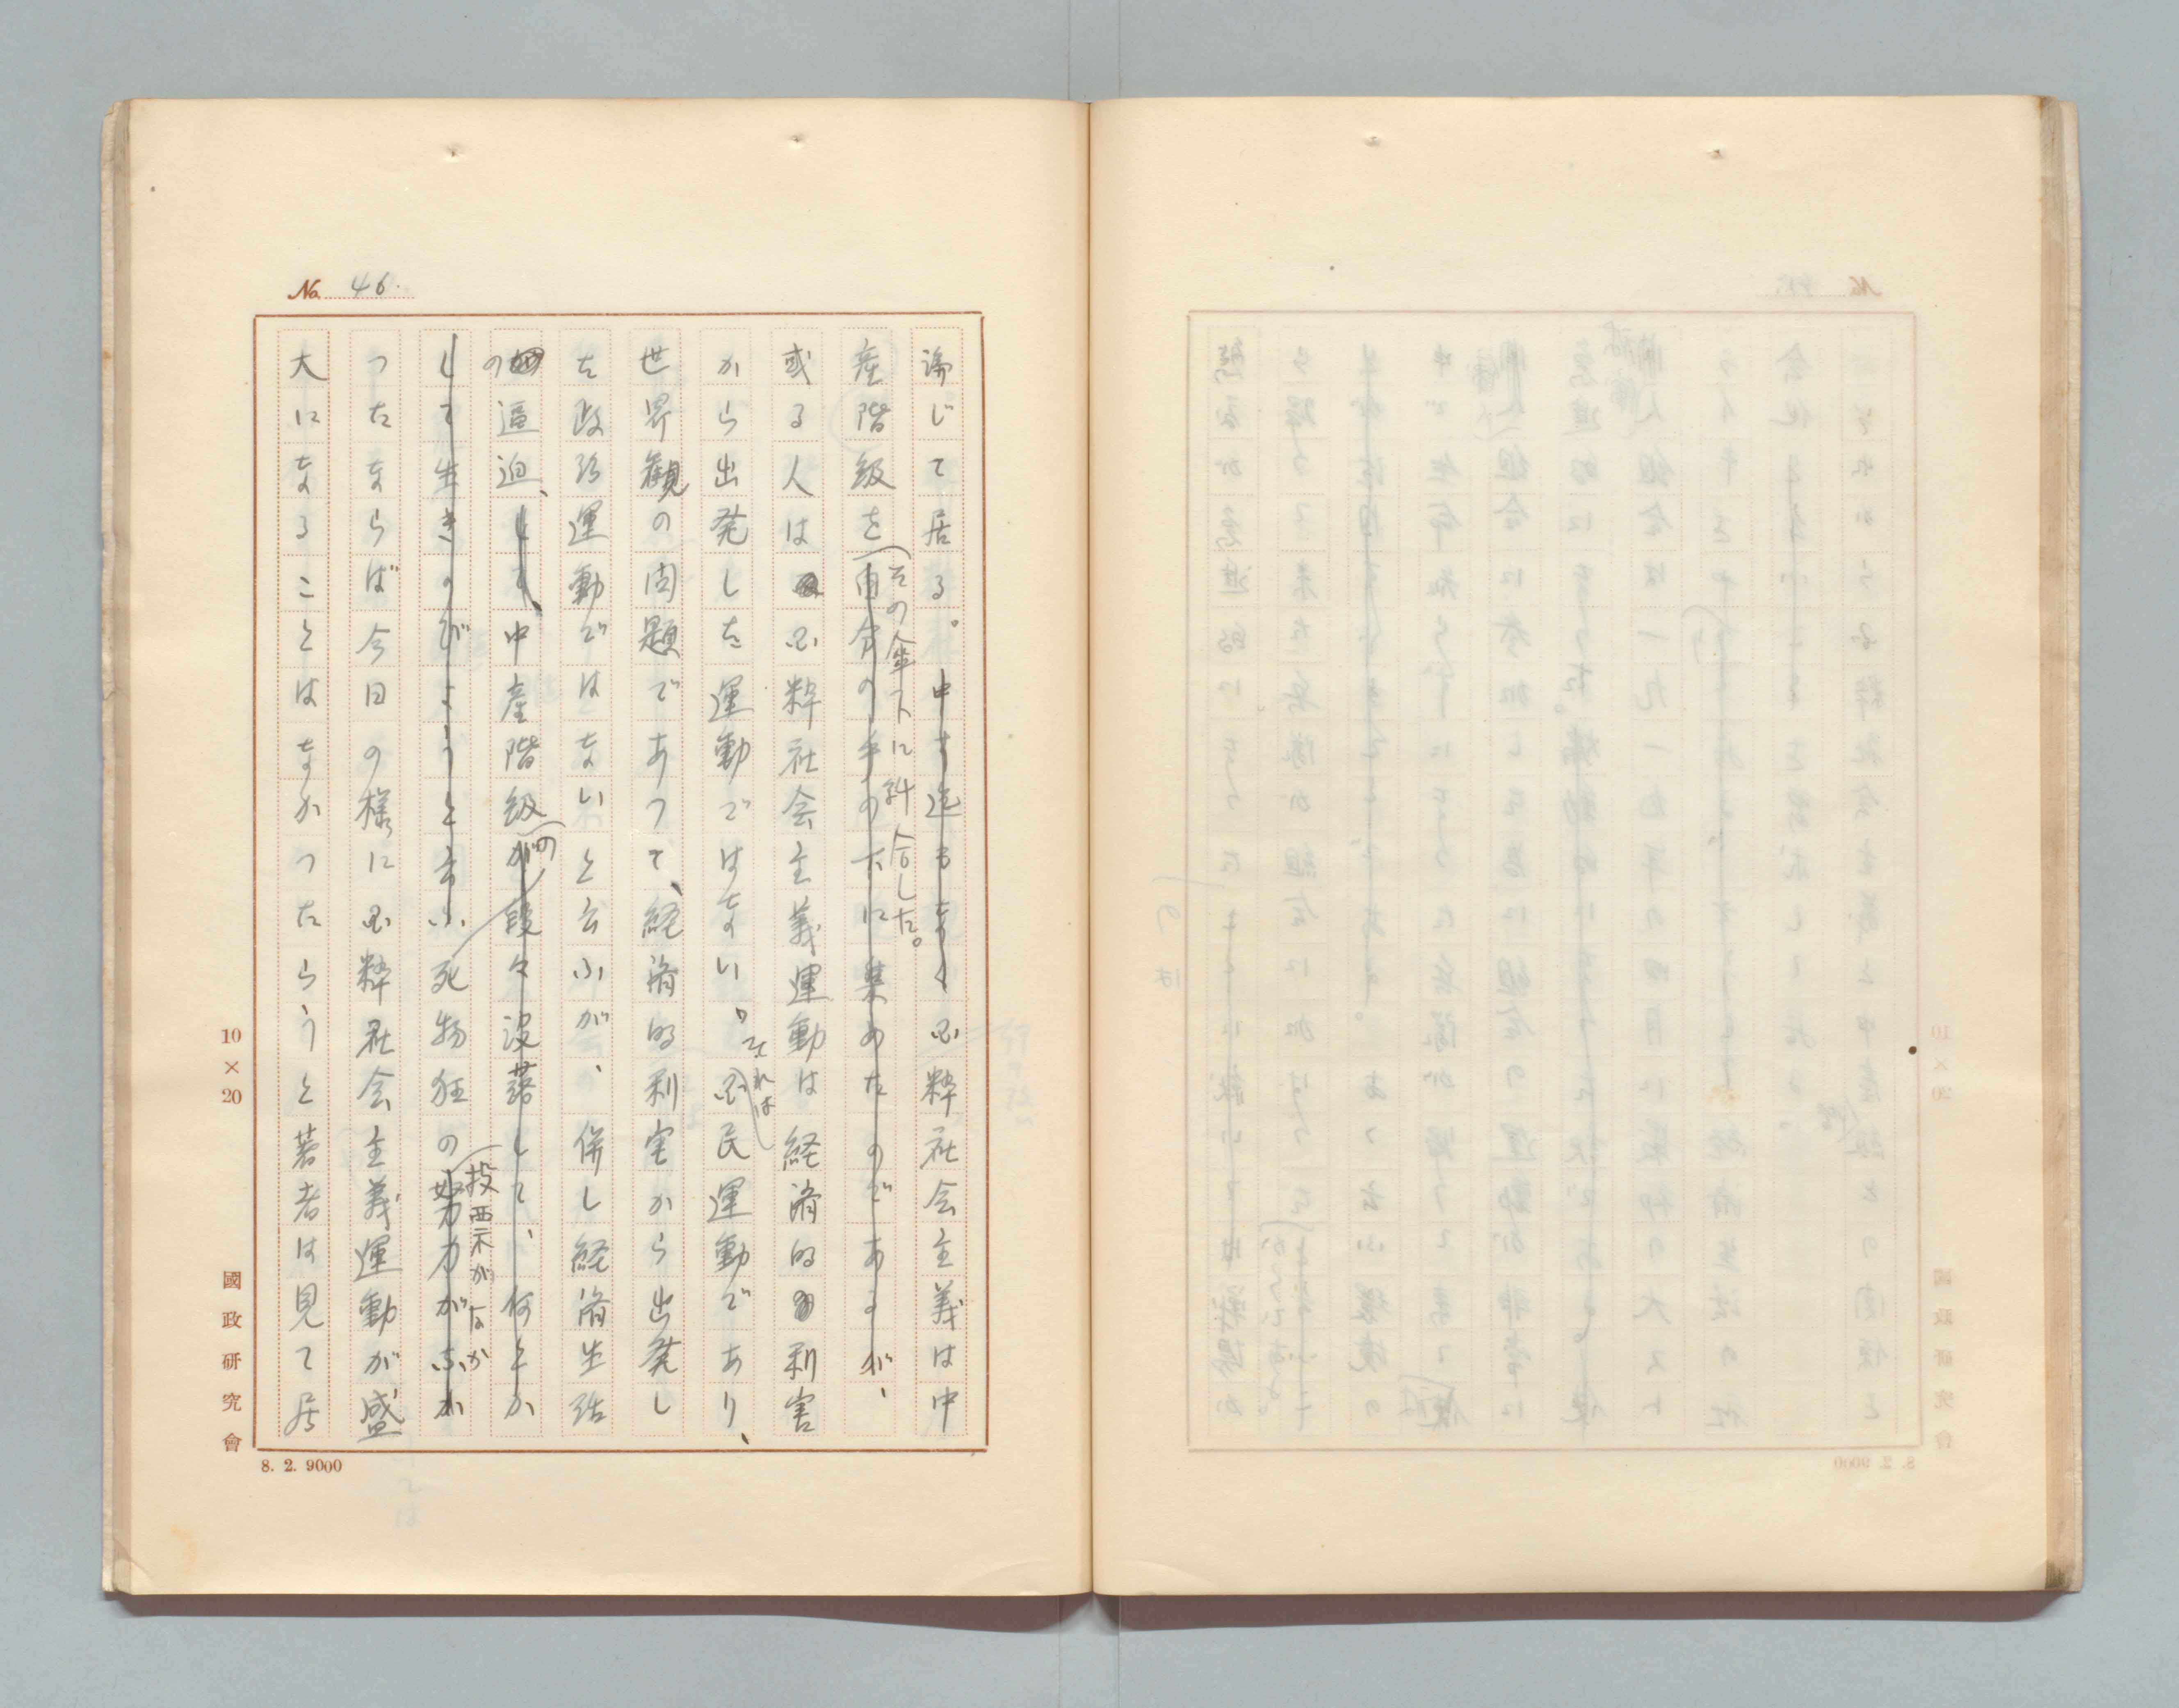 No. 46.
論じて居る。中す迄もなく国粋社会主義は中
産階級を自分の手の下に集めたのであるが、
その傘下に糾合した。
或る人は国粋社会主義運動は経済的利害
から出発した運動ではない。国民運動であり、
それは
世界観の問題であつて、経済的利害から出発し
た政治運動ではないと云ふが、併し経済生活
の逼迫、しも、中産階級が段々没落して、何とか
の
して生きのびようと云ふ死物狂の努力がなか
投票がなか
つたならば今日の様に国粋社会主義運動が盛
大になることはなかつたらうと著者は見て居
10×20
國政研究會
8. 2. 9000